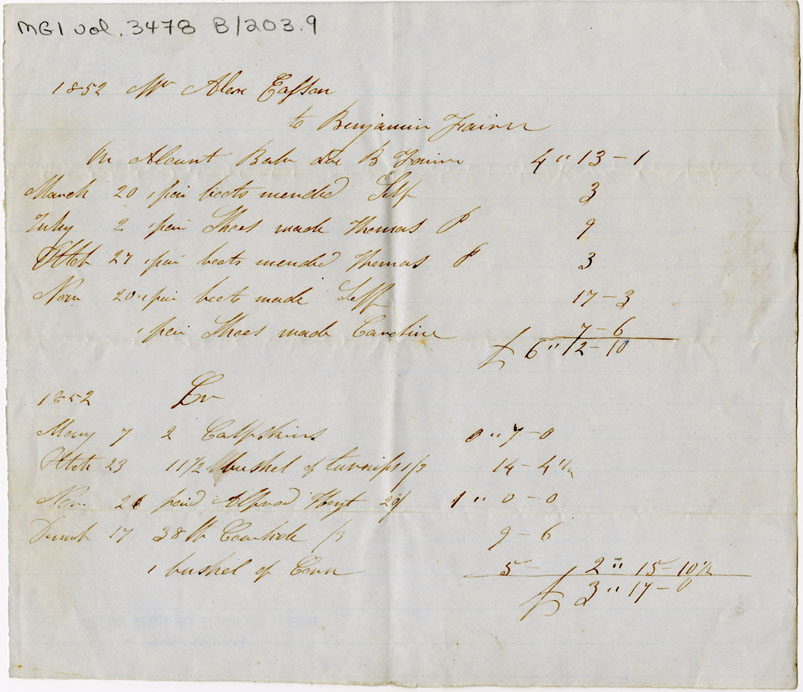 MG1 vol. 3478 B/203.9
1852 Mr Alex Easson
to Benjamin Fairn
On Acount Balu due B Fairn 4 " 13 - 1
March 20 1 pair boots mended Self 3
July 2 1 pair Shoes made Thomas P 9
27 1 pair boots mended Thomas P 3
Nov 20 1 pair boots made Self 17 - 3
1 pair Shoes made Caroline 7 - 6
£ 6 " 12 - 10
1852 Cr
May 7 2 Calfskins 0 " 7 - 0
23 11 1/2 bushel of turnips 1/3 14 - 4 1/2
Nov 26 paid Alfred Hoyt 20/ 1 " 0 - 0
17 38 lb Cowhide /3 9 - 6
1 bushel of Corn 5 - 2 " 15 - 10 1/2
£ 3 " 17 - 0